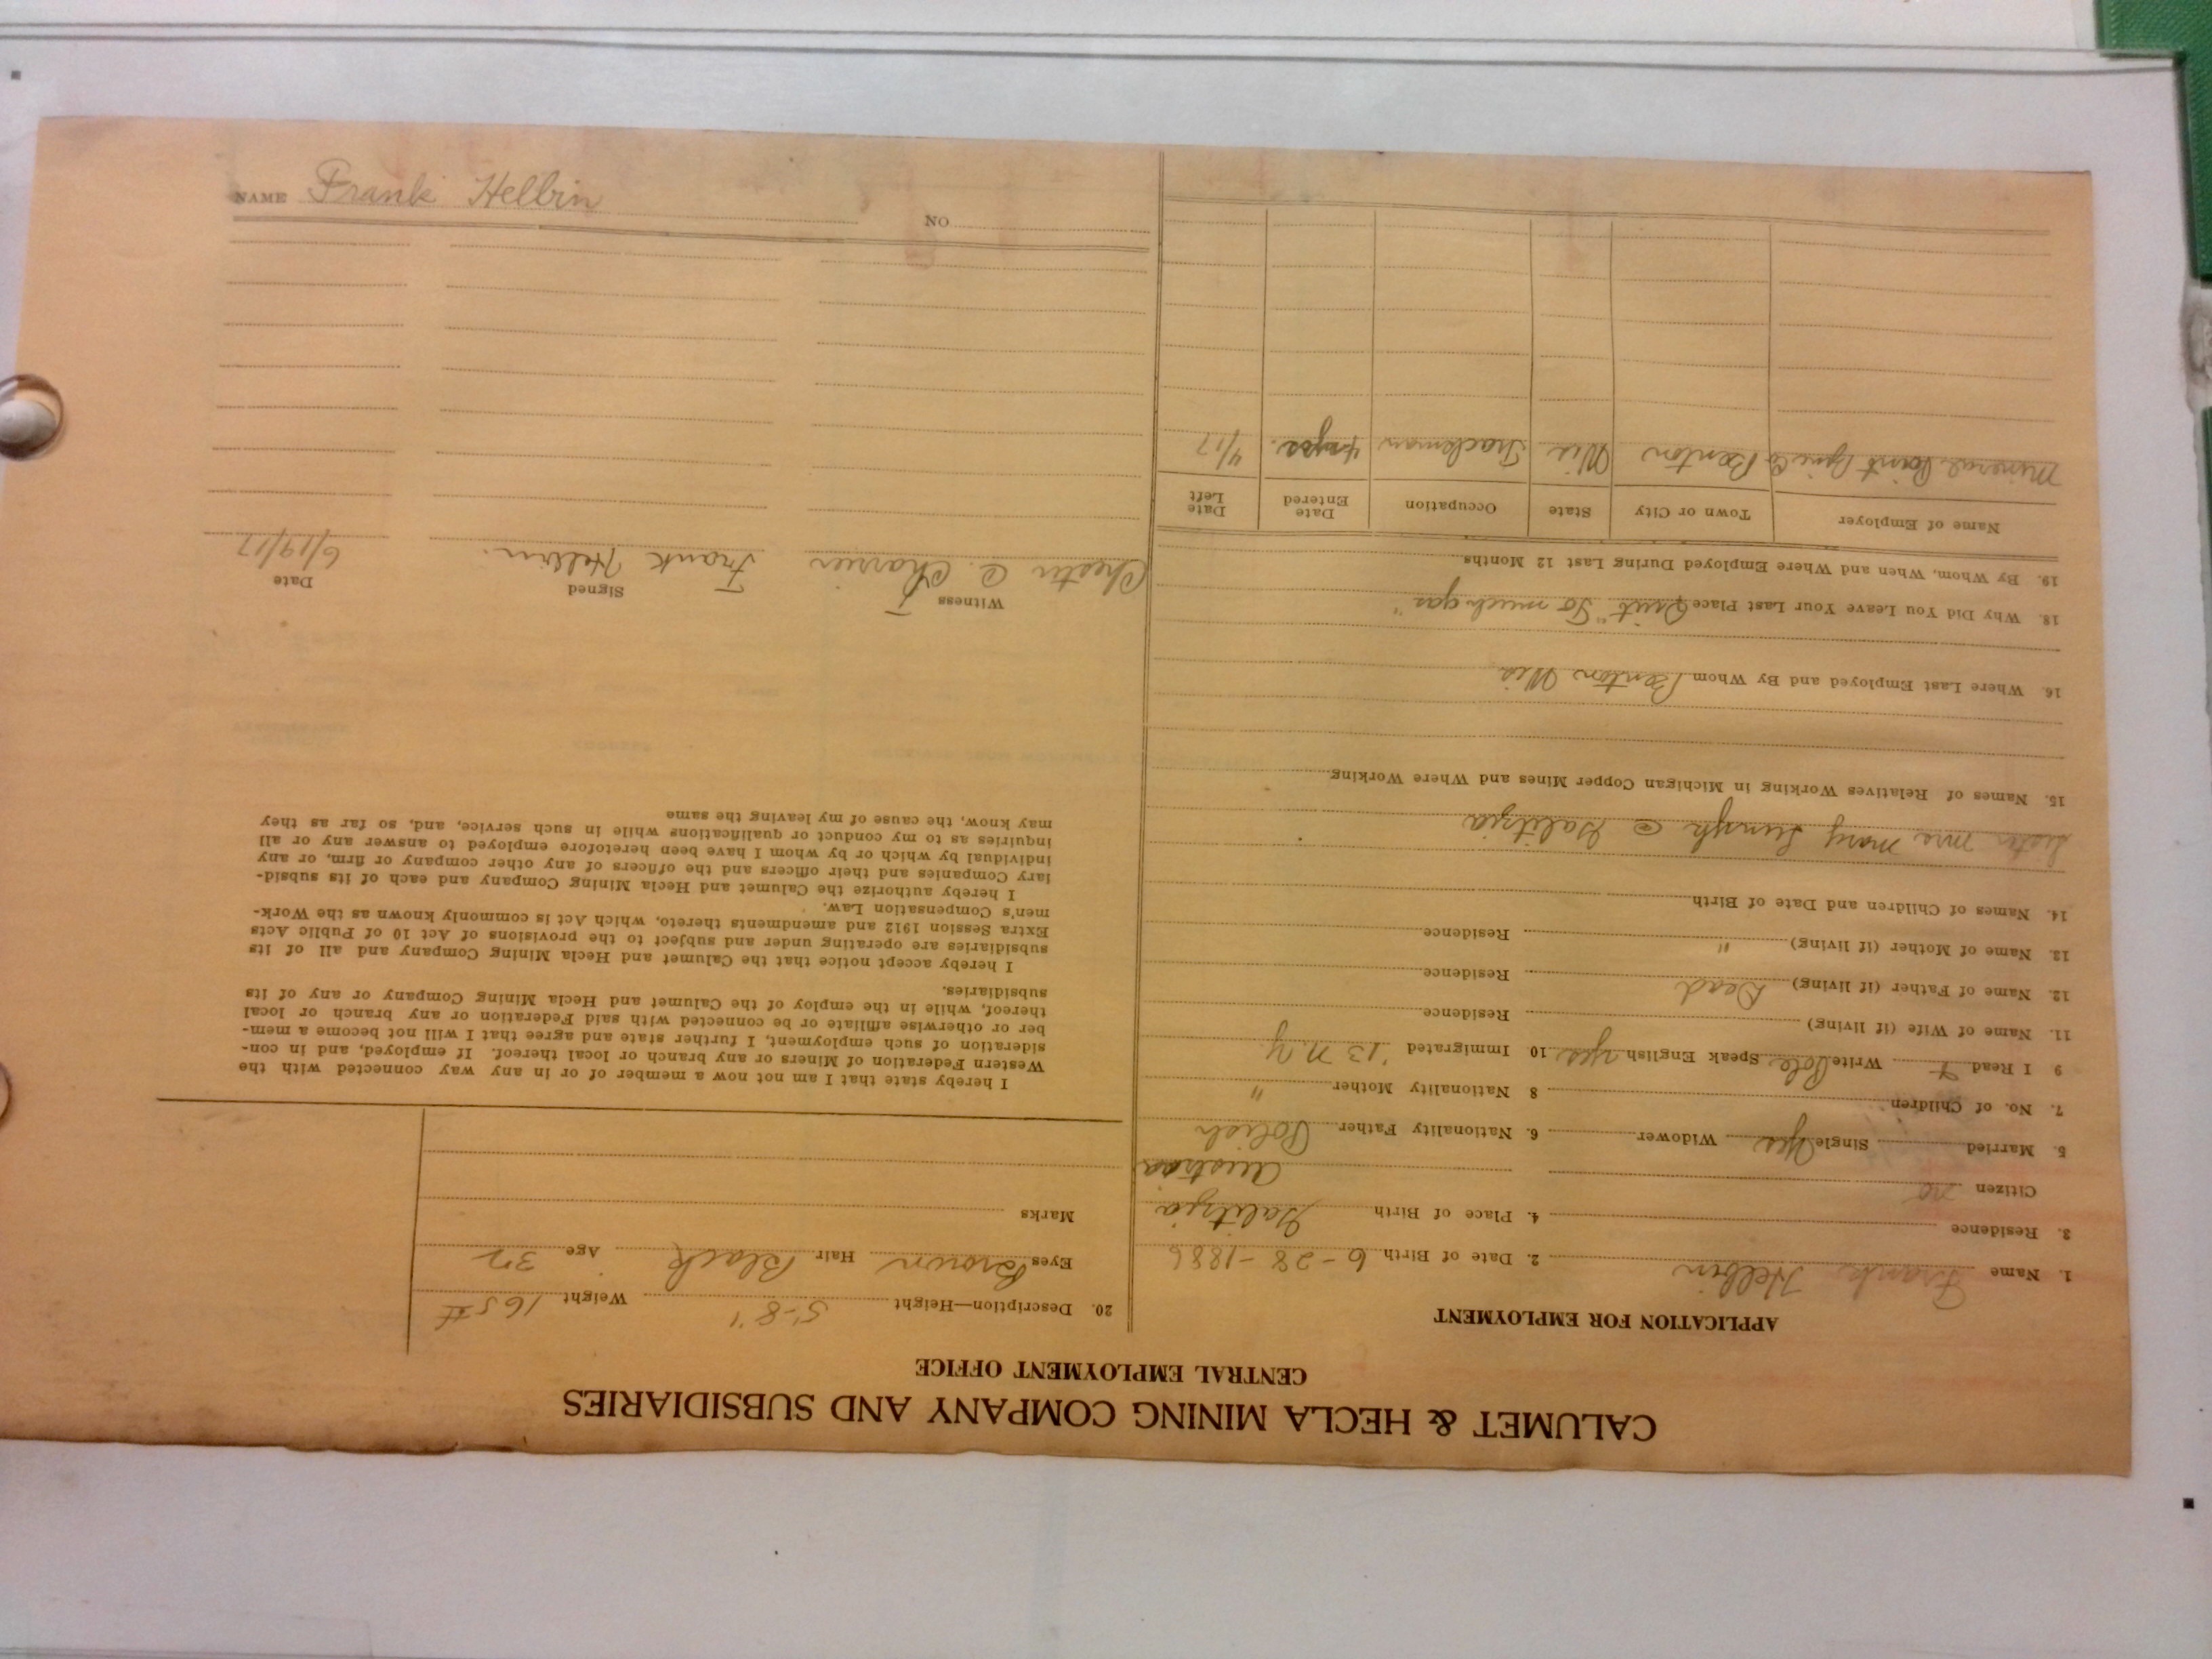 CALUMET & HECLA MINING COMPANY AND SUBSIDIARIES
CENTRAL EMPLOYMENT OFFICE
APPLICATION FOR EMPLOYMENT
1. Name Frank Helbin 2. Date of Birth 6-28-1886
3. Residence 4. Place of Birth Galitzia
Citizen no Austria
5. Married Single yes Widower 6. Nationality Father Polish
7. No. of Children 8 Nationality Mother "
9 I Read Write Pole Speak English yes 10 Immigrated '13 N.Y
11. Name of Wife (if living) Residence
12. Name of Father (if living) Dead Residence
12. Name of Mother (if living) " Residence
14. Names of Children and Date of Birth
Sister Mrs Mary @ Galitzia
15. Names of Relatives Working in Michigan Copper Mines and Where Working
16. Where Last Employed and By Whom Benton Wis
18. Why Did You Leave Your Last Place Quit "To much gas"
19. By Whom, When and Where Employed During Last 12 Months
Name of Employer Town or City State Occupation Date Entered Date Left
Mineral Point Co Benton Wis Trackman 4 yrs. 4/17
20. Description—Height 5-8" Weight 165#
Eyes Brown Hair Black Age 32
Marks
I hereby state that I am not now a member of or in any way connected with the
Western Federation of Miners or any branch or local thereof. If employed, and in con-
sideration of such employment, I further state and agree that I will not become a mem-
ber or otherwise affiliate or be connected with said Federation or any branch or local
thereof, while in the employ of the Calumet and Hecla Mining Company or any of its
subsidiaries.
I hereby accept notice that the Calumet and Hecla Mining Company and all of its
subsidiaries are operating under and subject to the provisions of Act 10 of Public Acts
Extra Session 1912 and amendments thereto, which Act is commonly known as the Work-
men's Compensation Law.
I hereby authorize the Calumet and Hecla Mining Company and each of its subsid-
iary Companies and their officers and the officers of any other company or firm, or any
individual by which or by whom I have been heretofore employed to answer any or all
inquiries as to my conduct or qualifications while in such service, and, so far as they
may know, the cause of my leaving the same
Witness Signed Date
Chester C. Charrier Frank Helbin. 6/19/17
NAME Frank Helbin NO